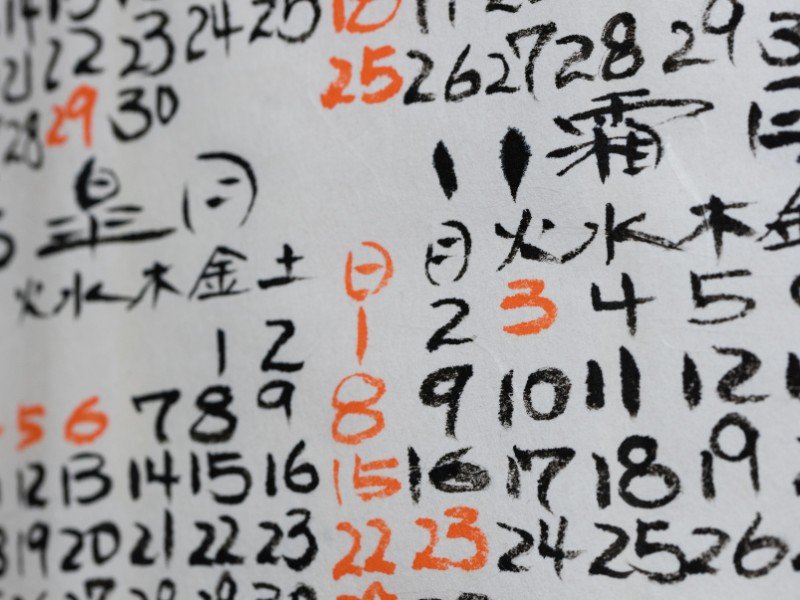 22 23 24 25
25 26 27 28 29
28 29 30
11 霜月
皐月
日 月 火 水 木 金
火 水 木 金 土
1 2 3 4 5
1 2
8 9 10 11 12
5 6 7 8 9
15 16 17 18 19
12 13 14 15 16
22 23 24 25 26
19 20 21 22 23